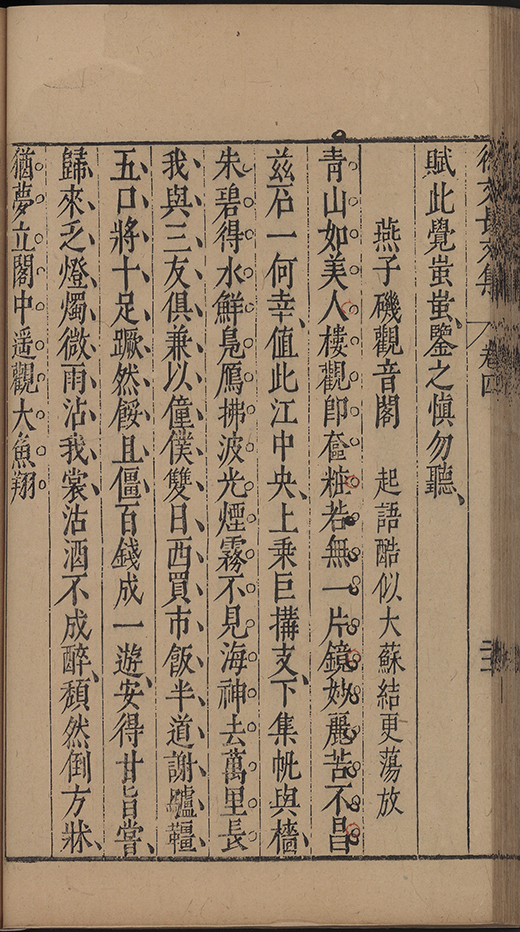 徐文長文集 卷四
賦此覺蚩蚩鑒之慎勿聽
燕子磯觀音閣 起語酷似大蘇結更蕩放
青山如美人樓觀卽奩粧若無一片鏡妙麗苦不昌
茲石一何幸值此江中央上乘巨搆支下集帆與檣
朱碧得水鮮鳧鴈拂波光煙霧不見海神去萬里長
我與三友俱兼以僮僕雙日西買市飯半道謝驢韁
五口將十足蹶然餒且僵百錢成一遊安得甘旨嘗
歸來乏燈燭微雨沾我裳沽酒不成醉頹然倒方牀
猶夢立閣中遥觀大魚翔